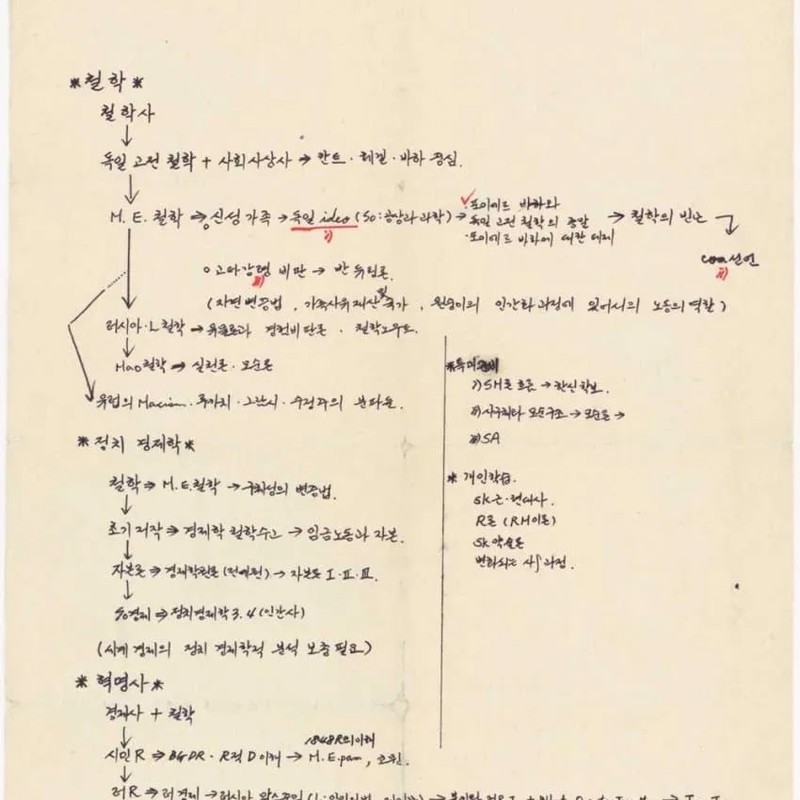 *철학*
철학사
↓
독일 고전 철학 + 사회사상사 → 칸트·헤겔·바하 중심.
↓
M. E. 철학 ⇒ 신성가족 → 독일 ideo (So: 공상과 과학) → ·포이에르 바하와
독일 고전 철학의 종말
·포이에르 바하에 대한 테제
→ 철학의 빈곤
com 선언
고타강령 비판 → 반 듀링론.
(자연변증법, 가족사유재산 및 국가, 원숭이의 인간화 과정에 있어서의 노동의 역할)
러시아·L철학 → 유물론과 경험비판론 · 철학노우트.
↓
Mao철학 → 실천론·모순론
유럽의 Marxism·루카치·그람시·수정주의 분파들.
1) SH론 흐름 → 한신학보.
모순구조 → 모순론 →
3) SA
* 개인학습.
SK근·현대사.
R론 (RH이론)
변화되는 사상과정.
*정치 경제학*
철학 ⇒ M.E.철학 → 변증법.
↓
초기저작 ⇒ 경제학 철학수고 → 임금노동과 자본.
↓
자본론 ⇒ 경제학원론 → 자본론 I·II·III.
↓
So경제 ⇒ 정치경제학 3.4 (인간사)
(세계 경제의 정치 경제학적 분석 보충 필요)
*혁명사*
경제사 + 철학
↓
1848R의 이해
시민R ⇒ BGDR·R적 D 이해 → M.E.pam,
↓
러R ⇒ 러경제 → 러시아